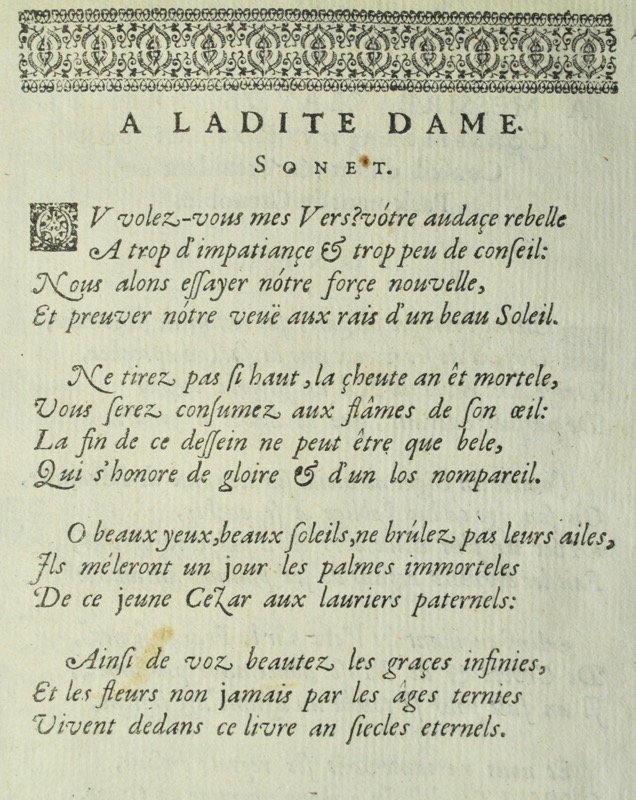 A LADITE DAME.
SONET.
OV volez-vous mes Vers? vótre audaçe rebelle
A trop d'impatiançe & trop peu de conſeil:
Nous alons eſſayer nótre forçe nouvelle,
Et preuver nótre veuë aux rais d'un beau Soleil.
Ne tirez pas ſi haut, la çheute an êt mortele,
Vous ſerez conſumez aux flâmes de ſon œil:
La fin de ce deſſein ne peut être que bele,
Qui s'honore de gloire & d'un los nompareil.
O beaux yeux, beaux ſoleils, ne brúlez pas leurs ailes,
Ils méleront un jour les palmes immorteles
De ce jeune Cezar aux lauriers paternels:
Ainſi de voz beautez les graçes infinies,
Et les fleurs non jamais par les âges ternies
Vivent dedans ce livre an ſiecles eternels.